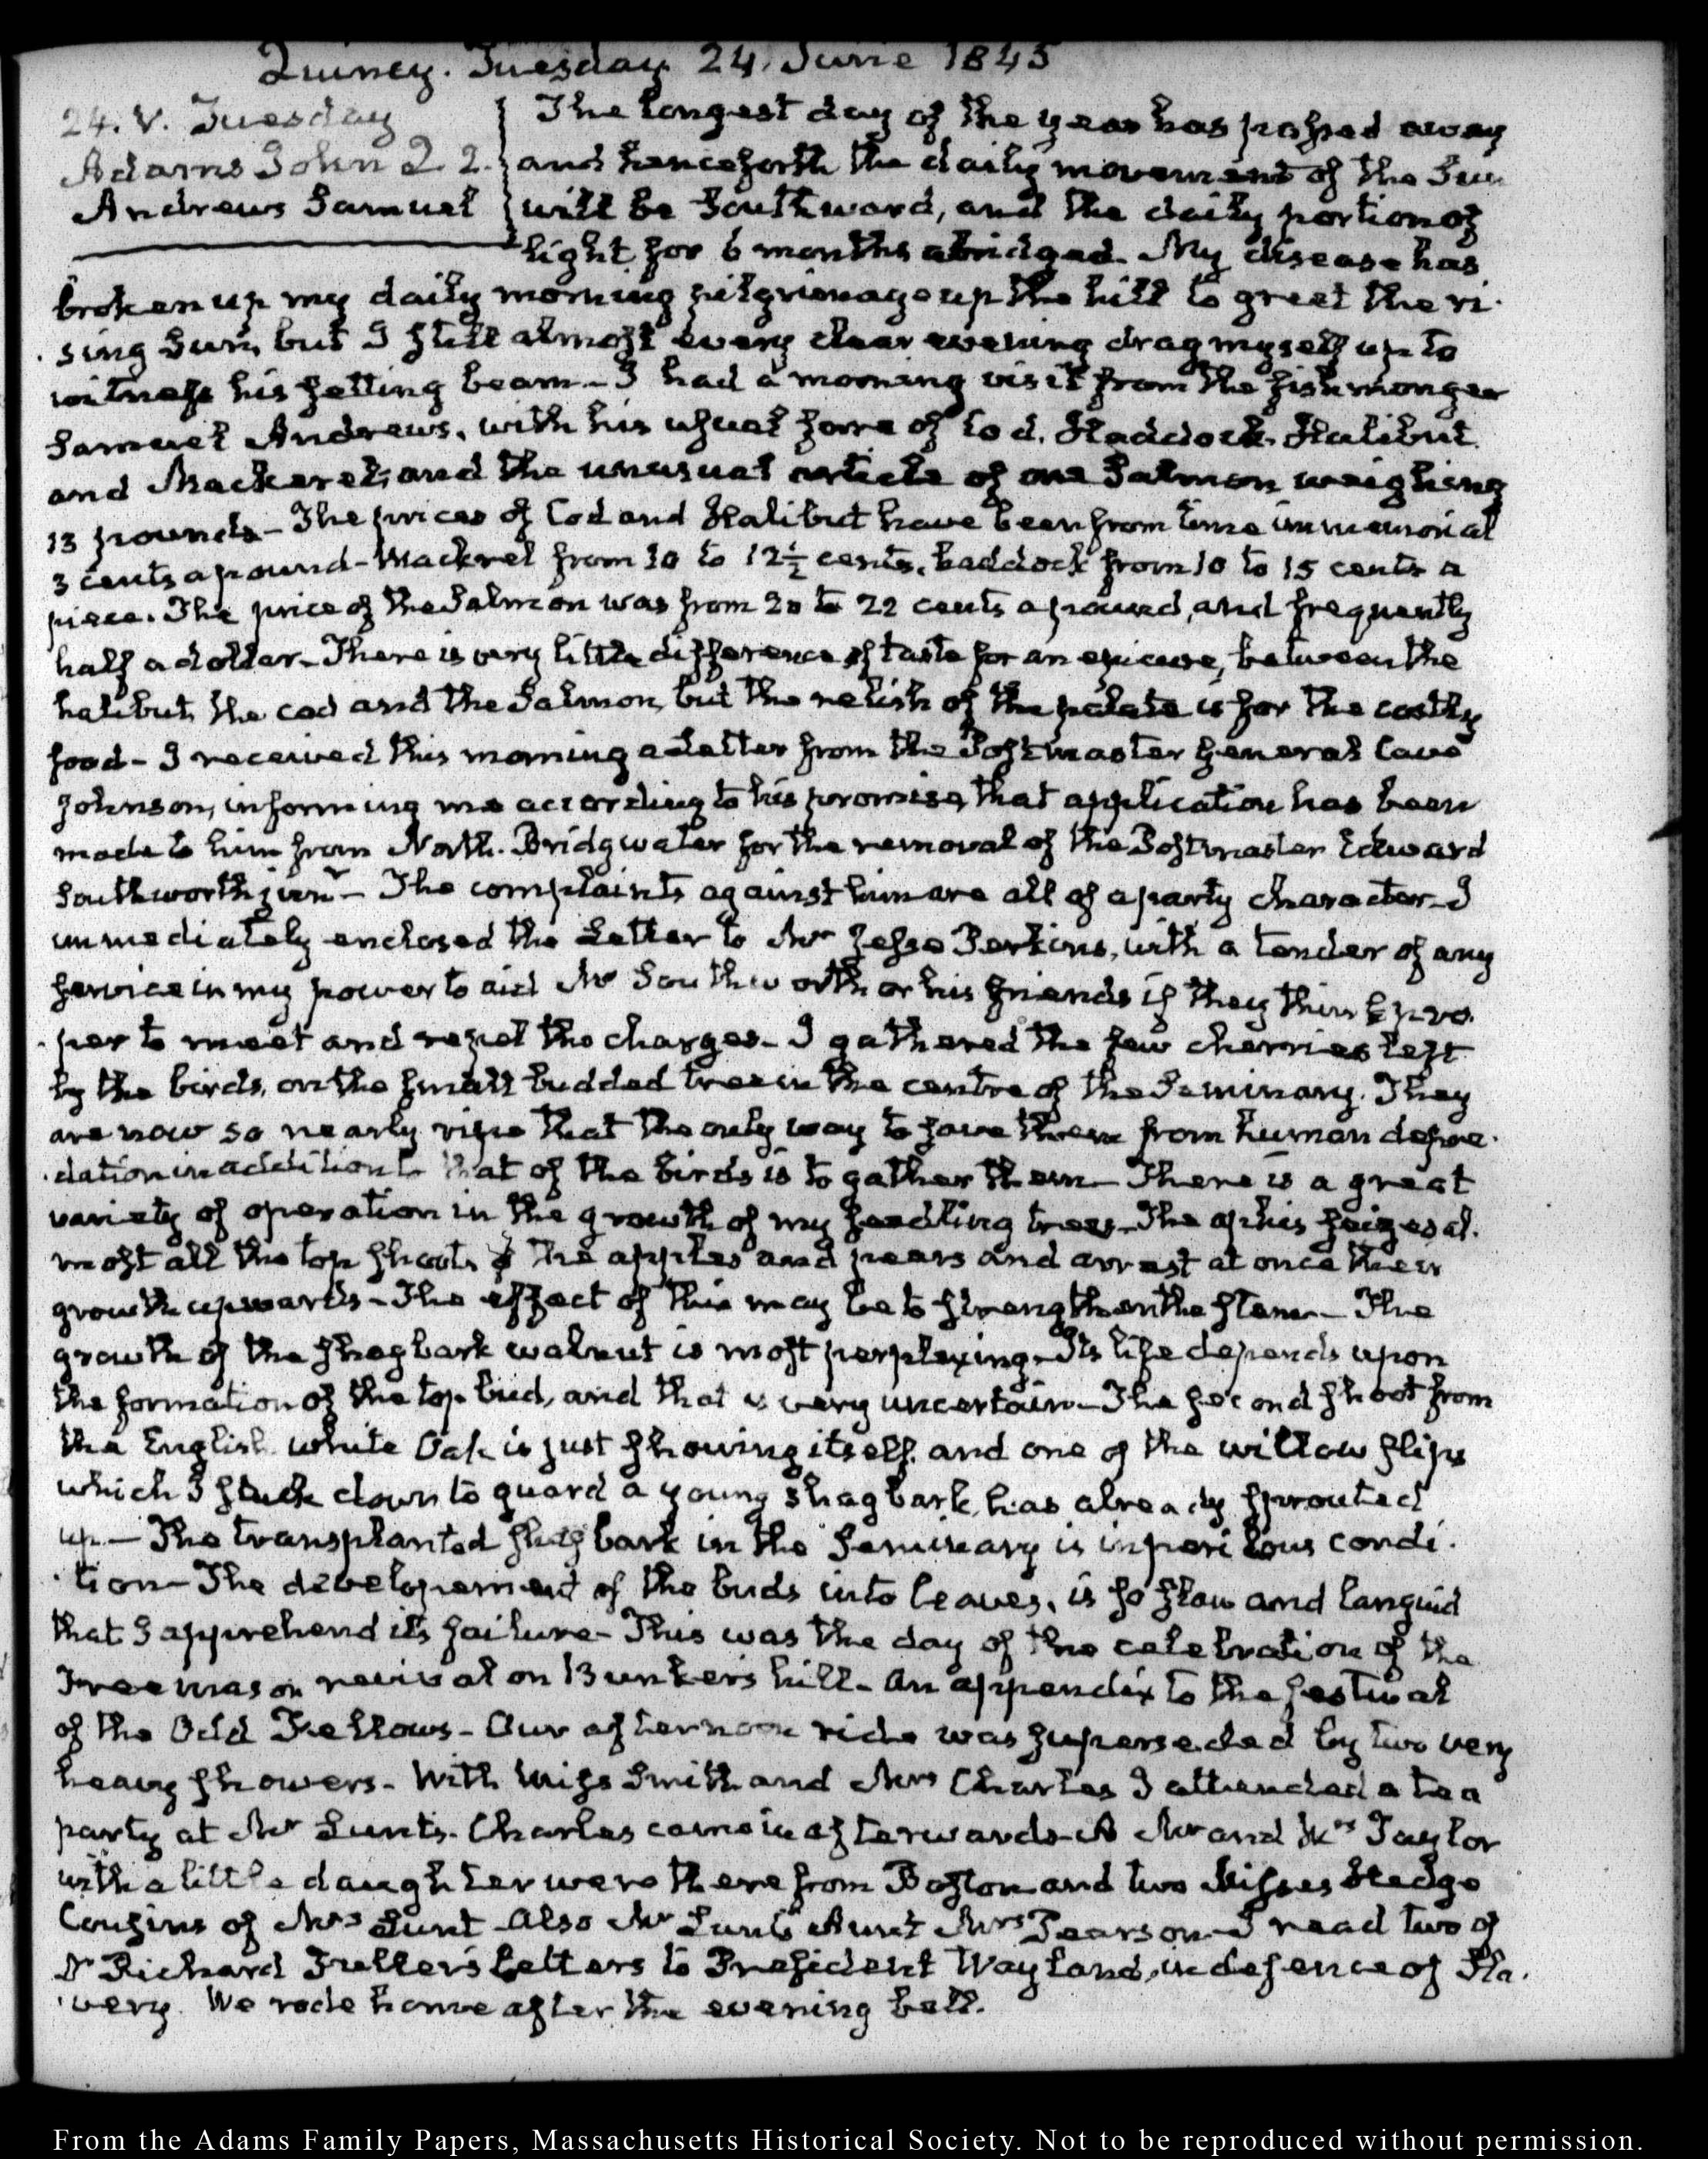 Quincy. Tuesday 24. June 1845
24. V. Tuesday
Adams John Q. 2.
Andrews Samuel
The longest day of the year has passed away
and henceforth the daily movement of the Sun
will be Southward, and the daily portion of
light for 6 months abridged. My disease has
broken up my daily morning pilgrimage up the hill to greet the ri-
-sing Sun, but I still almost every clear evening drag myself up to
witness his setting beam - I had a morning visit from the fishmonger
Samuel Andrews, with his usual fare of Cod, Haddock, Halibut
and Mackerel, and the unusual article of one Salmon weighing
13 pounds - The prices of Cod and Halibut have been from time immemorial
3 cents a pound - Mackrel from 10 to 12½ cents, haddock from 10 to 15 cents a
piece. The price of the Salmon was from 20 to 22 cents a pound, and frequently
half a dollar - There is very little difference of taste for an epicure, between the
halibut, the cod and the Salmon, but the relish of the palate is for the costly
food - I received this morning a Letter from the Postmaster General Cave
Johnson, informing me according to his promise, that application has been
made to him from North-Bridgwater for the removal of the Postmaster Edward
Southworth junr - The complaints against him are all of a party character - I
immediately enclosed the Letter to Mr Jesse Perkins, with a tender of any
service in my power to aid Mr Southworth or his friends if they think pro-
-per to meet and repel the charges - I gathered the few cherries left
by the birds, on the small budded tree in the centre of the Seminary. They
are now so nearly ripe that the only way to save them from human depre-
-dation in addition to that of the birds is to gather them - There is a great
variety of operation in the growth of my seedling trees - The aphis seizes al-
most all the top shoots of the apples and pears and arrest at once their
growth upwards - The effect of this may be to strengthen the stem - The
growth of the shagbark walnut is most perplexing - Its life depends upon
the formation of the top bud, and that is very uncertain - The second shoot from
the English white Oak is just showing itself, and one of the willow slips
which I stuck down to guard a young shagbark, has already sprouted
up - The transplanted shagbark in the Seminary is in perilous condi-
-tion - The developement of the buds into leaves, is so slow and languid
that I apprehend its failure - This was the day of the celebration of the
Freemason revival on Bunker's hill - an appendix to the festival
of the Odd Fellows - Our afternoon ride was superseded by two very
heavy showers - With Miss Smith and Mrs Charles I attended a tea
party at Mr Lunt's - Charles came in afterwards - A Mr and Mrs Taylor
with a little daughter were there from Boston and two Misses Hedge
Cousins of Mrs Lunt - Also Mr Lunt's Aunt Mrs Pearson - I read two of
Dr Richard Fuller's Letters to President Wayland, in defence of Sla-
-very. We rode home after the evening bell.
From the Adams Family Papers, Massachusetts Historical Society. Not to be reproduced without permission.